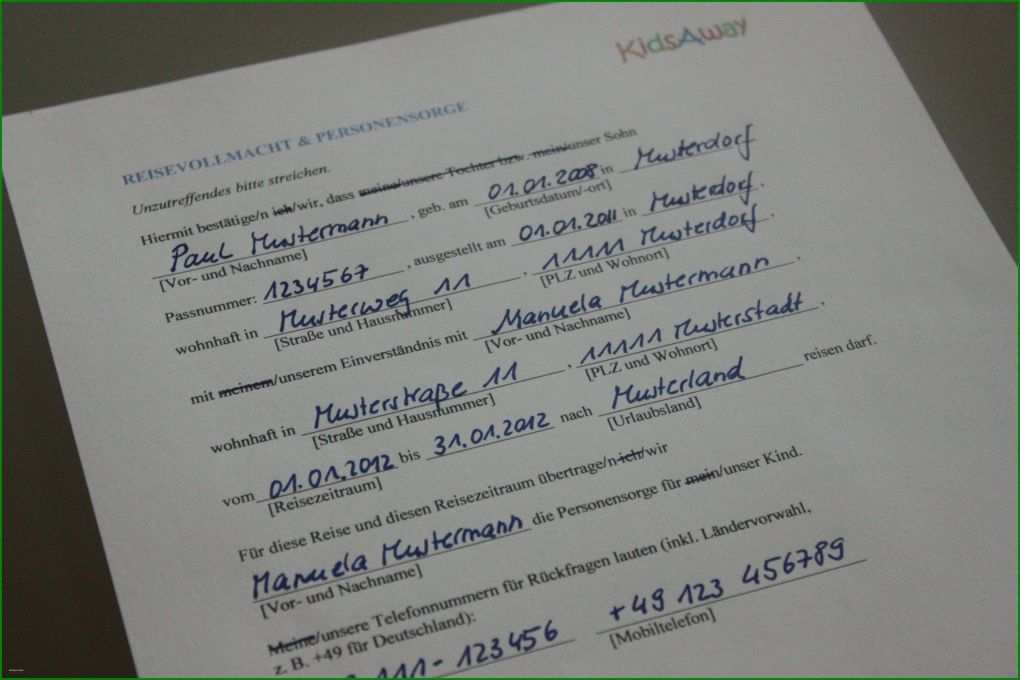 KidsAway
REISEVOLLMACHT & PERSONENSORGE
Unzutreffendes bitte streichen.
Hiermit bestätige/n ich/wir, dass meine/unsere Tochter bzw. mein/unser Sohn
Paul Mustermann, geb. am 01.01.2008 in Musterdorf
[Vor- und Nachname] [Geburtsdatum/-ort]
Passnummer: 1234567, ausgestellt am 01.01.2011 in Musterdorf.
wohnhaft in Musterweg 11, 11111 Musterdorf.
[Straße und Hausnummer] [PLZ und Wohnort]
mit meinem/unserem Einverständnis mit Manuela Mustermann,
[Vor- und Nachname]
wohnhaft in Musterstraße 11, 11111 Musterstadt,
[Straße und Hausnummer] [PLZ und Wohnort]
vom 01.01.2012 bis 31.01.2012 nach Musterland reisen darf.
[Reisezeitraum] [Urlaubsland]
Für diese Reise und diesen Reisezeitraum übertrage/n ich/wir
Manuela Mustermann die Personensorge für mein/unser Kind.
[Vor- und Nachname]
Meine/unsere Telefonnummern für Rückfragen lauten (inkl. Ländervorwahl,
z. B. +49 für Deutschland):
111-123456 +49 123 456789
[Mobiltelefon]